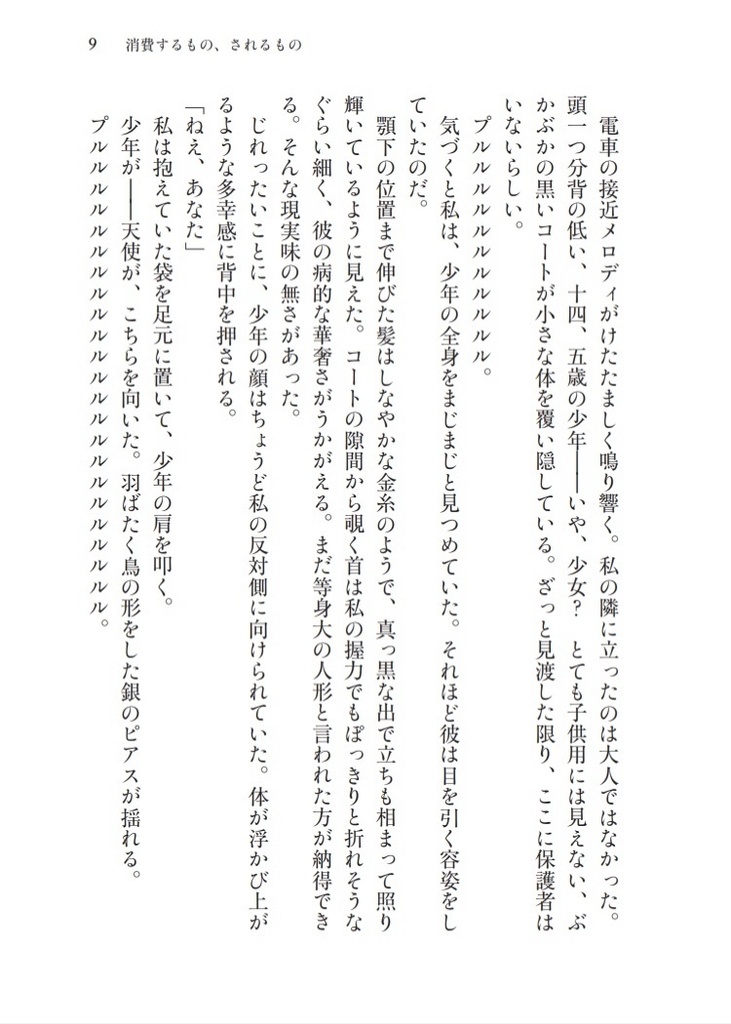 9　消費するもの、されるもの
　電車の接近メロディがけたたましく鳴り響く。私の隣に立ったのは大人ではなかった。
頭一つ分背の低い、十四、五歳の少年――いや、少女？　とても子供用には見えない、ぶ
かぶかの黒いコートが小さな体を覆い隠している。ざっと見渡した限り、ここに保護者は
いないらしい。
　プルルルルルルルルルルル。
　気づくと私は、少年の全身をまじまじと見つめていた。それほど彼は目を引く容姿をし
ていたのだ。
　顎下の位置まで伸びた髪はしなやかな金糸のようで、真っ黒な出で立ちも相まって照り
輝いているように見えた。コートの隙間から覗く首は私の握力でもぽっきりと折れそうな
ぐらい細く、彼の病的な華奢さがうかがえる。まだ等身大の人形と言われた方が納得でき
る。そんな現実味の無さがあった。
　じれったいことに、少年の顔はちょうど私の反対側に向けられていた。体が浮かび上が
るような多幸感に背中を押される。
「ねえ、あなた」
　私は抱えていた袋を足元に置いて、少年の肩を叩く。
　少年が――天使が、こちらを向いた。羽ばたく鳥の形をした銀のピアスが揺れる。
　プルルルルルルルルルルルルルルルルルルルルルルル。